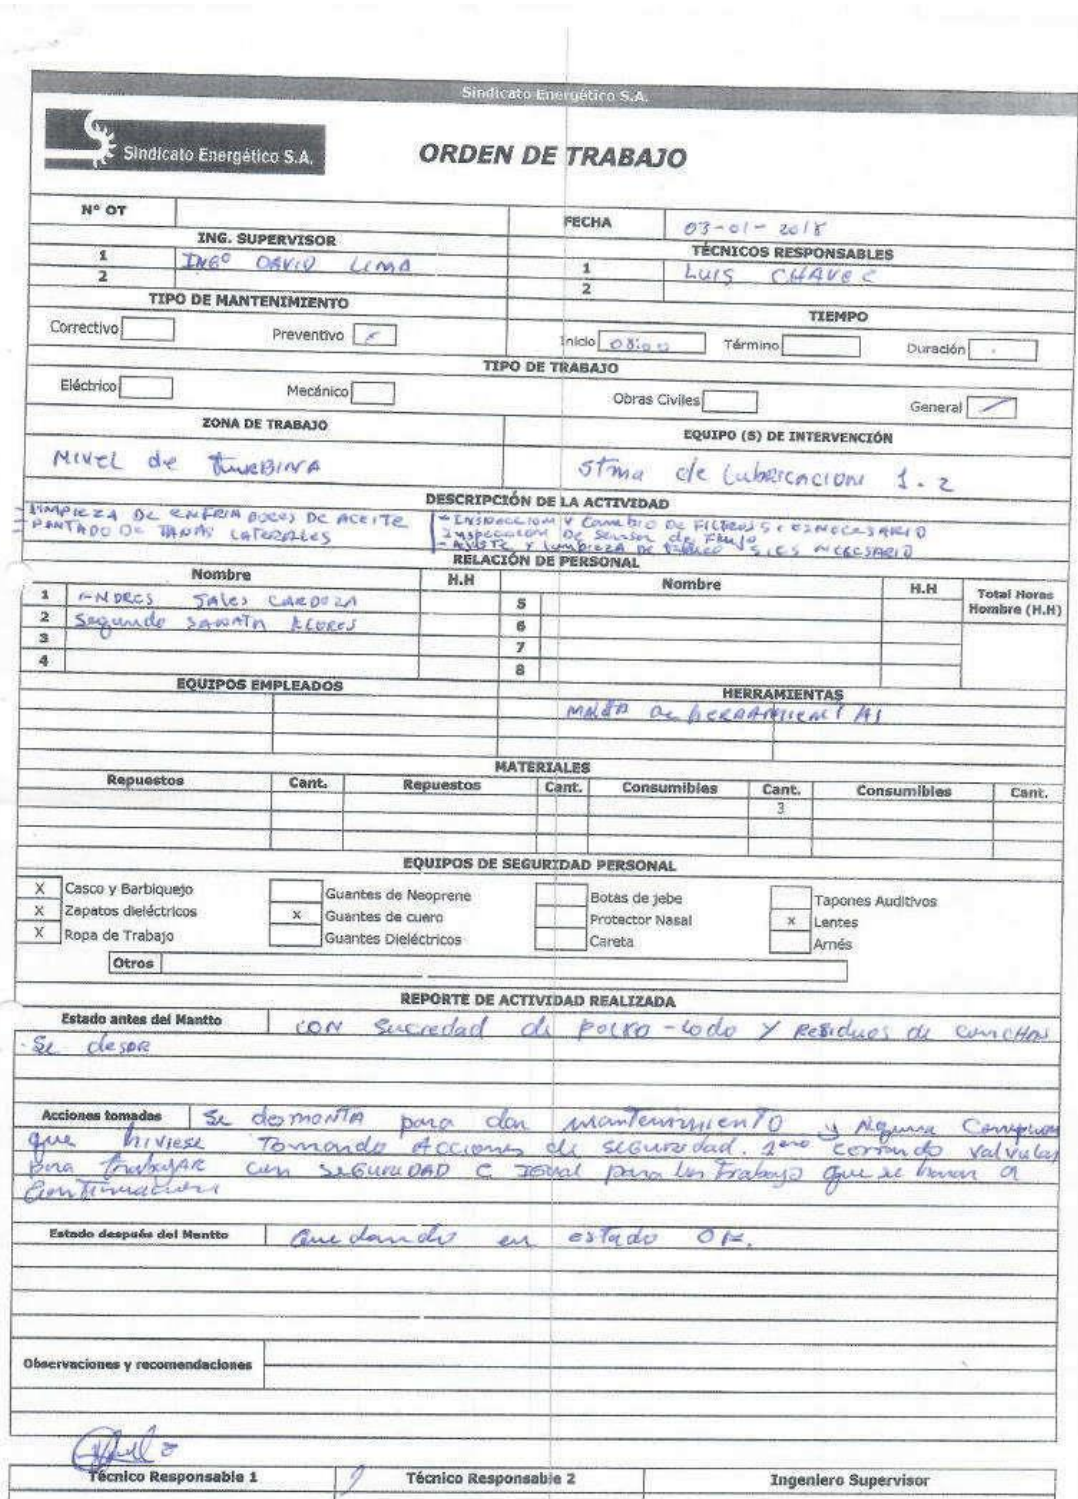 Sindicato Energético S.A.
Sindicato Energético S.A.
ORDEN DE TRABAJO
Nº OT
FECHA 03-01-2018
ING. SUPERVISOR
TÉCNICOS RESPONSABLES
1 INGº DAVID LIMA
1 LUIS CHAVEZ
2
2
TIPO DE MANTENIMIENTO
TIEMPO
Correctivo Preventivo
Inicio 08:00 Término Duración
TIPO DE TRABAJO
Eléctrico Mecánico Obras Civiles General
ZONA DE TRABAJO
EQUIPO (S) DE INTERVENCIÓN
NIVEL de TURBINA
STMA de Lubricacion 1-2
DESCRIPCIÓN DE LA ACTIVIDAD
- LIMPIEZA DE ENFRIADORES DE ACEITE
- PINTADO DE TAPAS LATERALES
- INSPECCION Y CAMBIO DE FILTROS SI ES NECESARIO
INSPECCION DE SENSOR DE FLUJO
- AJUSTE Y LIMPIEZA DE SI ES NECESARIO
RELACIÓN DE PERSONAL
Nombre H.H Nombre H.H Total Horas Hombre (H.H)
1 ANDRES SALES CARDOZA 5
2 Segundo 6
3 7
4 8
EQUIPOS EMPLEADOS
HERRAMIENTAS
DE HERRAMIENTAS
MATERIALES
Repuestos Cant. Repuestos Cant. Consumibles Cant. Consumibles Cant.
3
EQUIPOS DE SEGURIDAD PERSONAL
X Casco y Barbiquejo Guantes de Neoprene Botas de jebe Tapones Auditivos
X Zapatos dieléctricos x Guantes de cuero Protector Nasal x Lentes
X Ropa de Trabajo Guantes Dieléctricos Careta Arnés
Otros
REPORTE DE ACTIVIDAD REALIZADA
Estado antes del Mantto CON Suciedad de POLVO-Lodo Y Residuos de CONCHAS
Se
Acciones tomadas Se desmonta para dar mantenimiento y Alguna
que hiviese Tomando Acciones de seguridad. 1ero Cerrando valvulas
para trabajar con SEGURIDAD e IGUAL para los trabajo que se haran a
Continuacion
Estado después del Mantto Quedando en estado OK.
Observaciones y recomendaciones
Técnico Responsable 1 Técnico Responsable 2 Ingeniero Supervisor